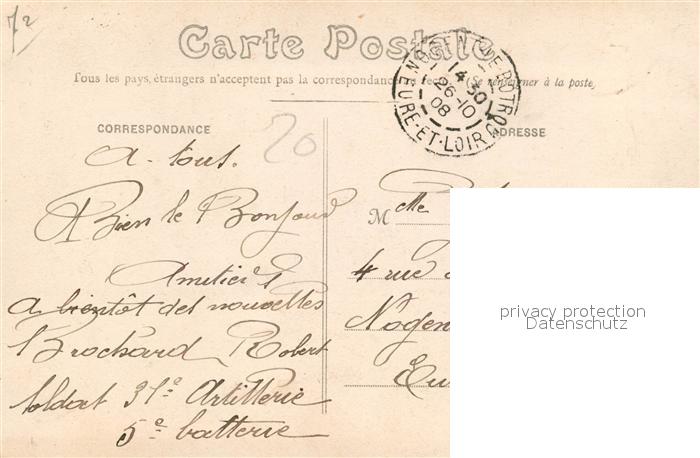 72
Carte Postale
Tous les pays étrangers n'acceptent pas la correspondance au recto (Se renseigner à la poste)
NOGENT LE ROTROU
14 30
26-10
08
EURE-ET-LOIR
CORRESPONDANCE
20
ADRESSE
A tous.
Bien le Bonjour
Amitiés
a bientôt des nouvelles
Brochard Robert
soldat 31e Artillerie
5e batterie
Melle
4 rue
Nogen
Eu
privacy protection
Datenschutz